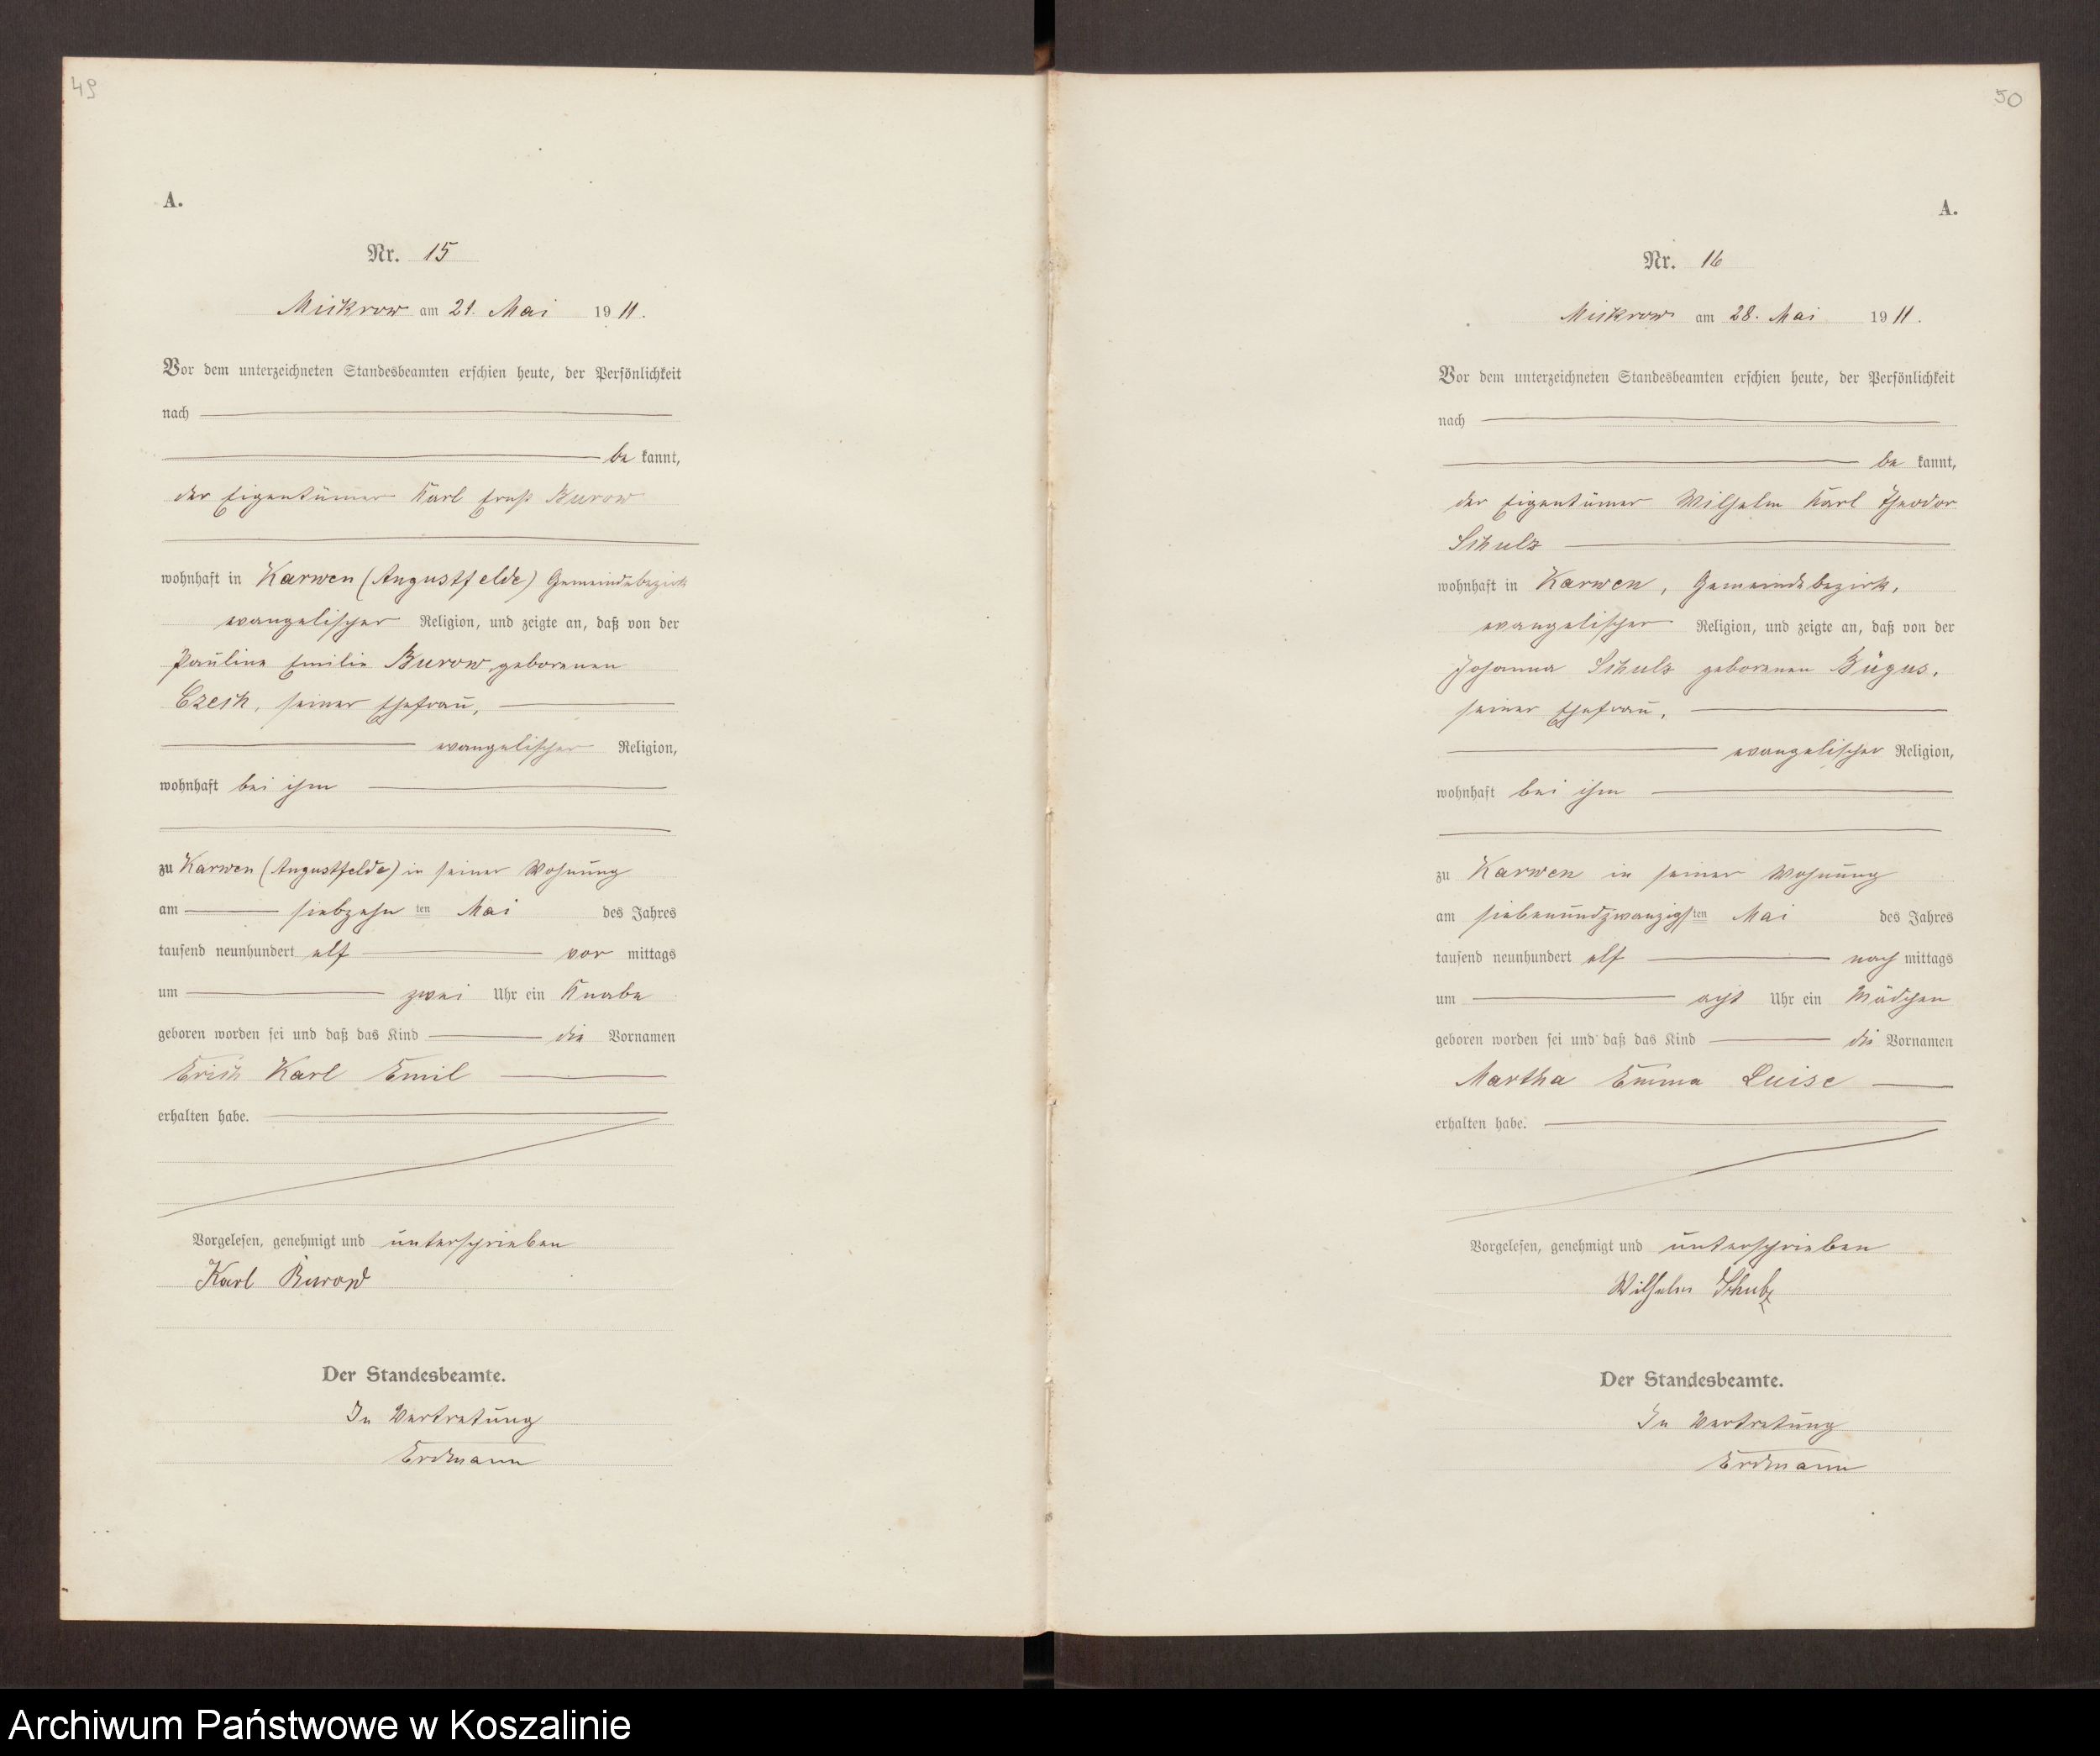 49
A.
Nr. 15
Mickrow am 21. Mai 1911.
Vor dem unterzeichneten Standesbeamten erschien heute, der Persönlichkeit
nach
be kannt,
der Eigentümer Karl Ernst Burow
wohnhaft in Karwen (Augustfelde) Gemeindebezirk
evangelischer Religion, und zeigte an, daß von der
Pauline Emilie Burow, geborenen
Czech, seiner Ehefrau,
evangelischer Religion,
wohnhaft bei ihm
zu Karwen (Augustfelde) in seiner Wohnung
am siebzehn ten Mai des Jahres
tausend neunhundert elf vor mittags
um zwei Uhr ein Knabe
geboren worden sei und daß das Kind die Vornamen
Erich Karl Emil
erhalten habe.
Vorgelesen, genehmigt und unterschrieben
Karl Burow
Der Standesbeamte.
In Vertretung
Erdmann
50
A.
Nr. 16
Mickrow am 28. Mai 1911.
Vor dem unterzeichneten Standesbeamten erschien heute, der Persönlichkeit
nach
be kannt,
der Eigentümer Wilhelm Karl Theodor
Schulz
wohnhaft in Karwen, Gemeindebezirk,
evangelischer Religion, und zeigte an, daß von der
Johanna Schulz geborenen Bügus,
seiner Ehefrau,
evangelischer Religion,
wohnhaft bei ihm
zu Karwen in seiner Wohnung
am siebenundzwanzigsten Mai des Jahres
tausend neunhundert elf nach mittags
um acht Uhr ein Mädchen
geboren worden sei und daß das Kind die Vornamen
Martha Emma Luise
erhalten habe.
Vorgelesen, genehmigt und unterschrieben
Wilhelm Schulz
Der Standesbeamte.
In Vertretung
Erdmann
Archiwum Państwowe w Koszalinie